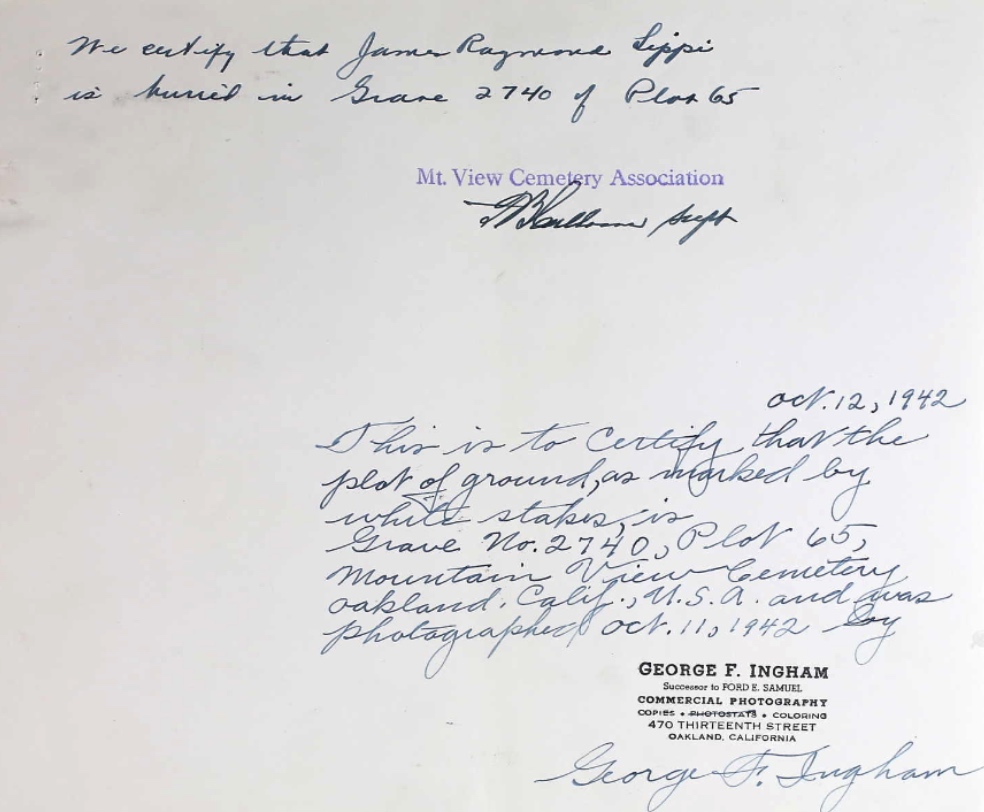 We certify that James Raymond Lippi
is burried in Grave 2740 of Plot 65
Mt. View Cemetery Association
Supt
Oct. 12, 1942
This is to certify that the
plot of ground, as marked by
white stakes, is
Grave No. 2740, Plot 65,
Mountain View Cemetery
Oakland, Calif., U.S.A. and was
photographed Oct. 11, 1942 by
GEORGE F. INGHAM
Successor to FORD E. SAMUEL
COMMERCIAL PHOTOGRAPHY
COPIES • PHOTOSTATS • COLORING
470 THIRTEENTH STREET
OAKLAND, CALIFORNIA
George F. Ingham